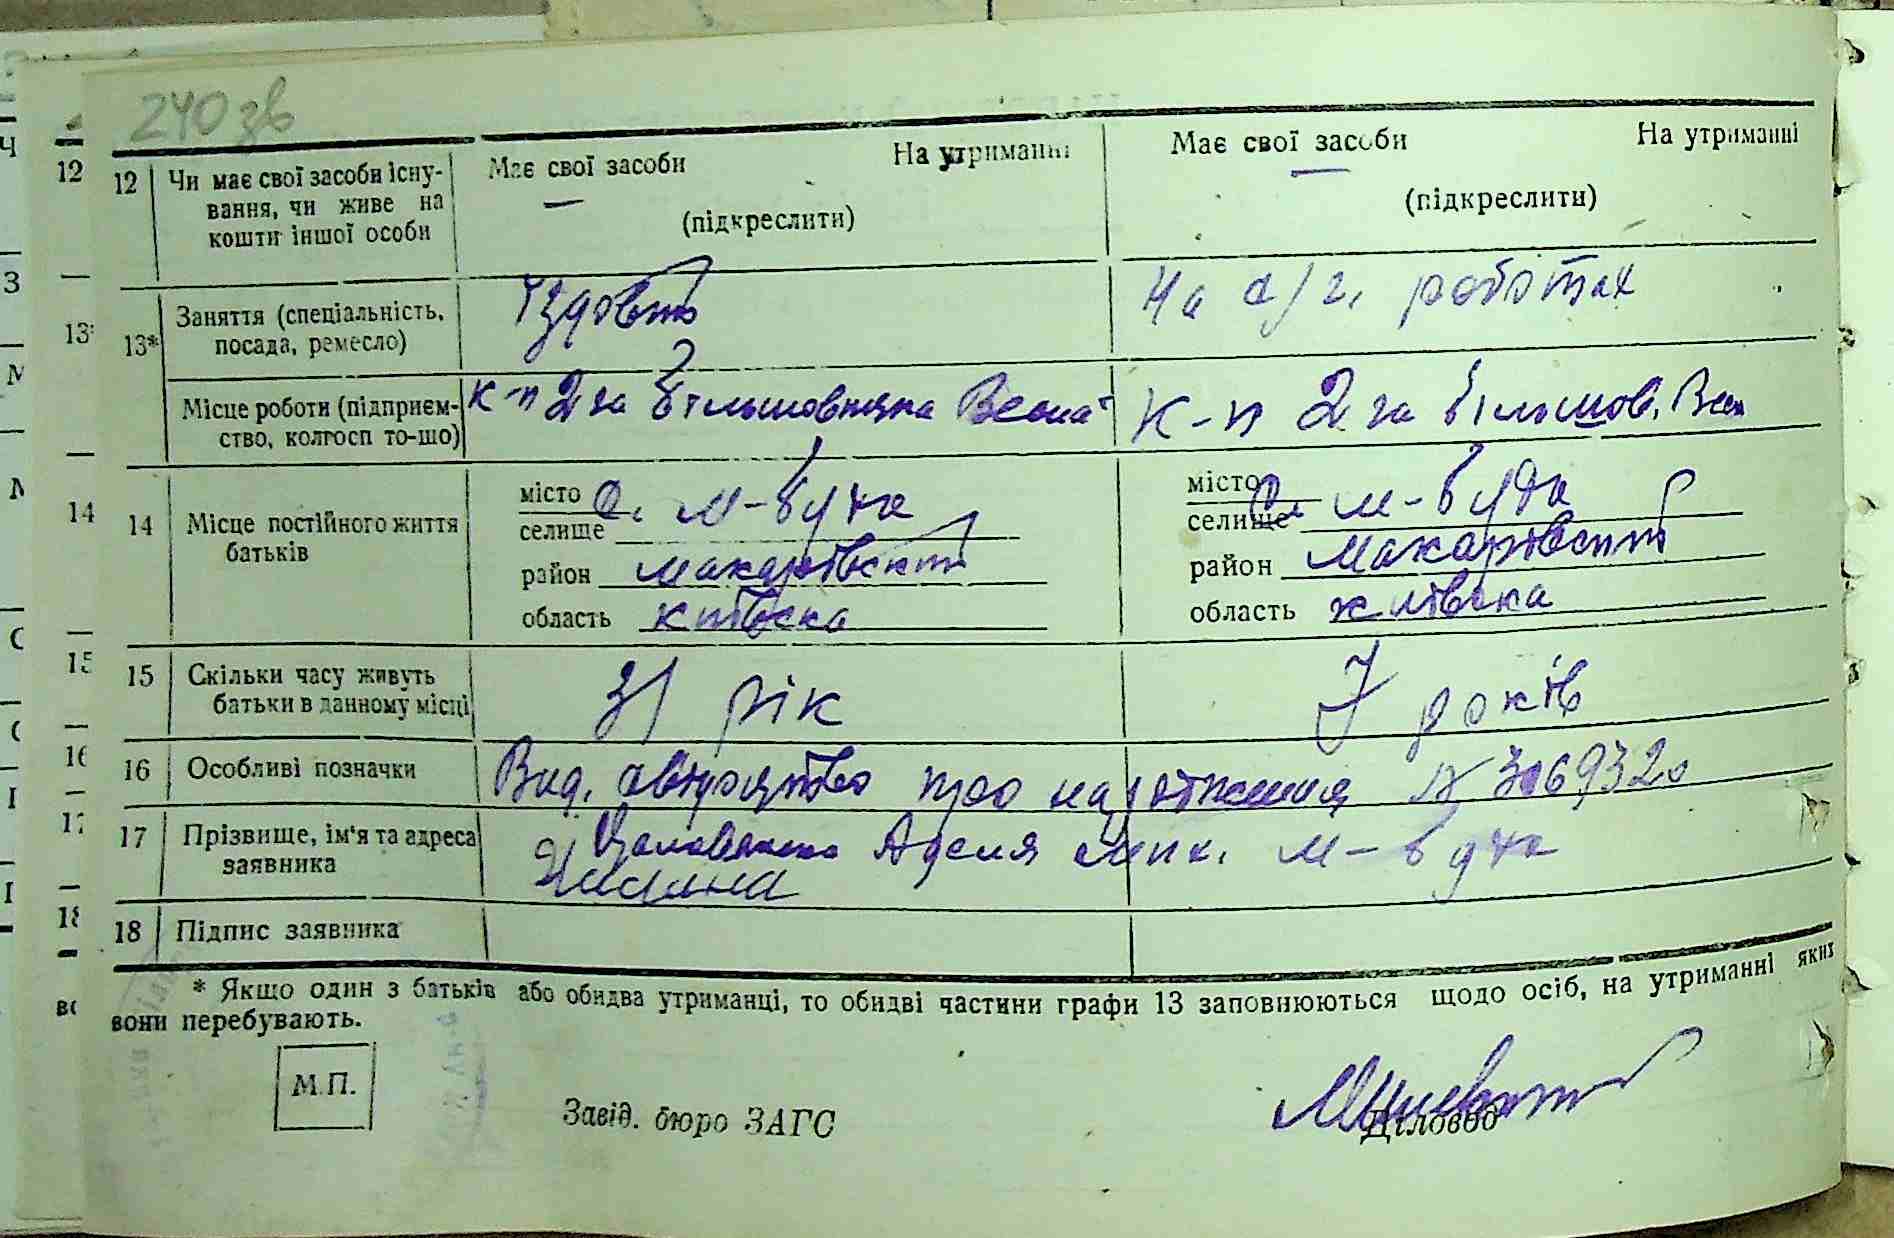 240 зв
12 Чи має свої засоби існу- Має свої засоби На утриманні Має свої засоби На утриманні
вання, чи живе на (підкреслити) (підкреслити)
кошти іншої особи
13* Заняття (спеціальність, Їздовий На с/г. роботах
посада, ремесло)
Місце роботи (підприєм- к-п 2га більшовицька Весна к-п 2 га більшов. Весн
ство, колгосп то-що)
14 Місце постійного життя місто с. М-Буда місто с. М-Буда
батьків селище селище
район Макарівський район Макарівський
область Київска область Київска
15 Скільки часу живуть 31 рік 7 років
батьки в данному місці
16 Особливі позначки Вид. свідоцтво про народження № 3069320
17 Прізвище, ім'я та адреса Аделя Мик. М-Буда
заявника
18 Підпис заявника
* Якщо один з батьків або обидва утриманці, то обидві частини графи 13 заповнюються щодо осіб, на утриманні яких
вони перебувають.
М.П.
Завід. бюро ЗАГС Діловод